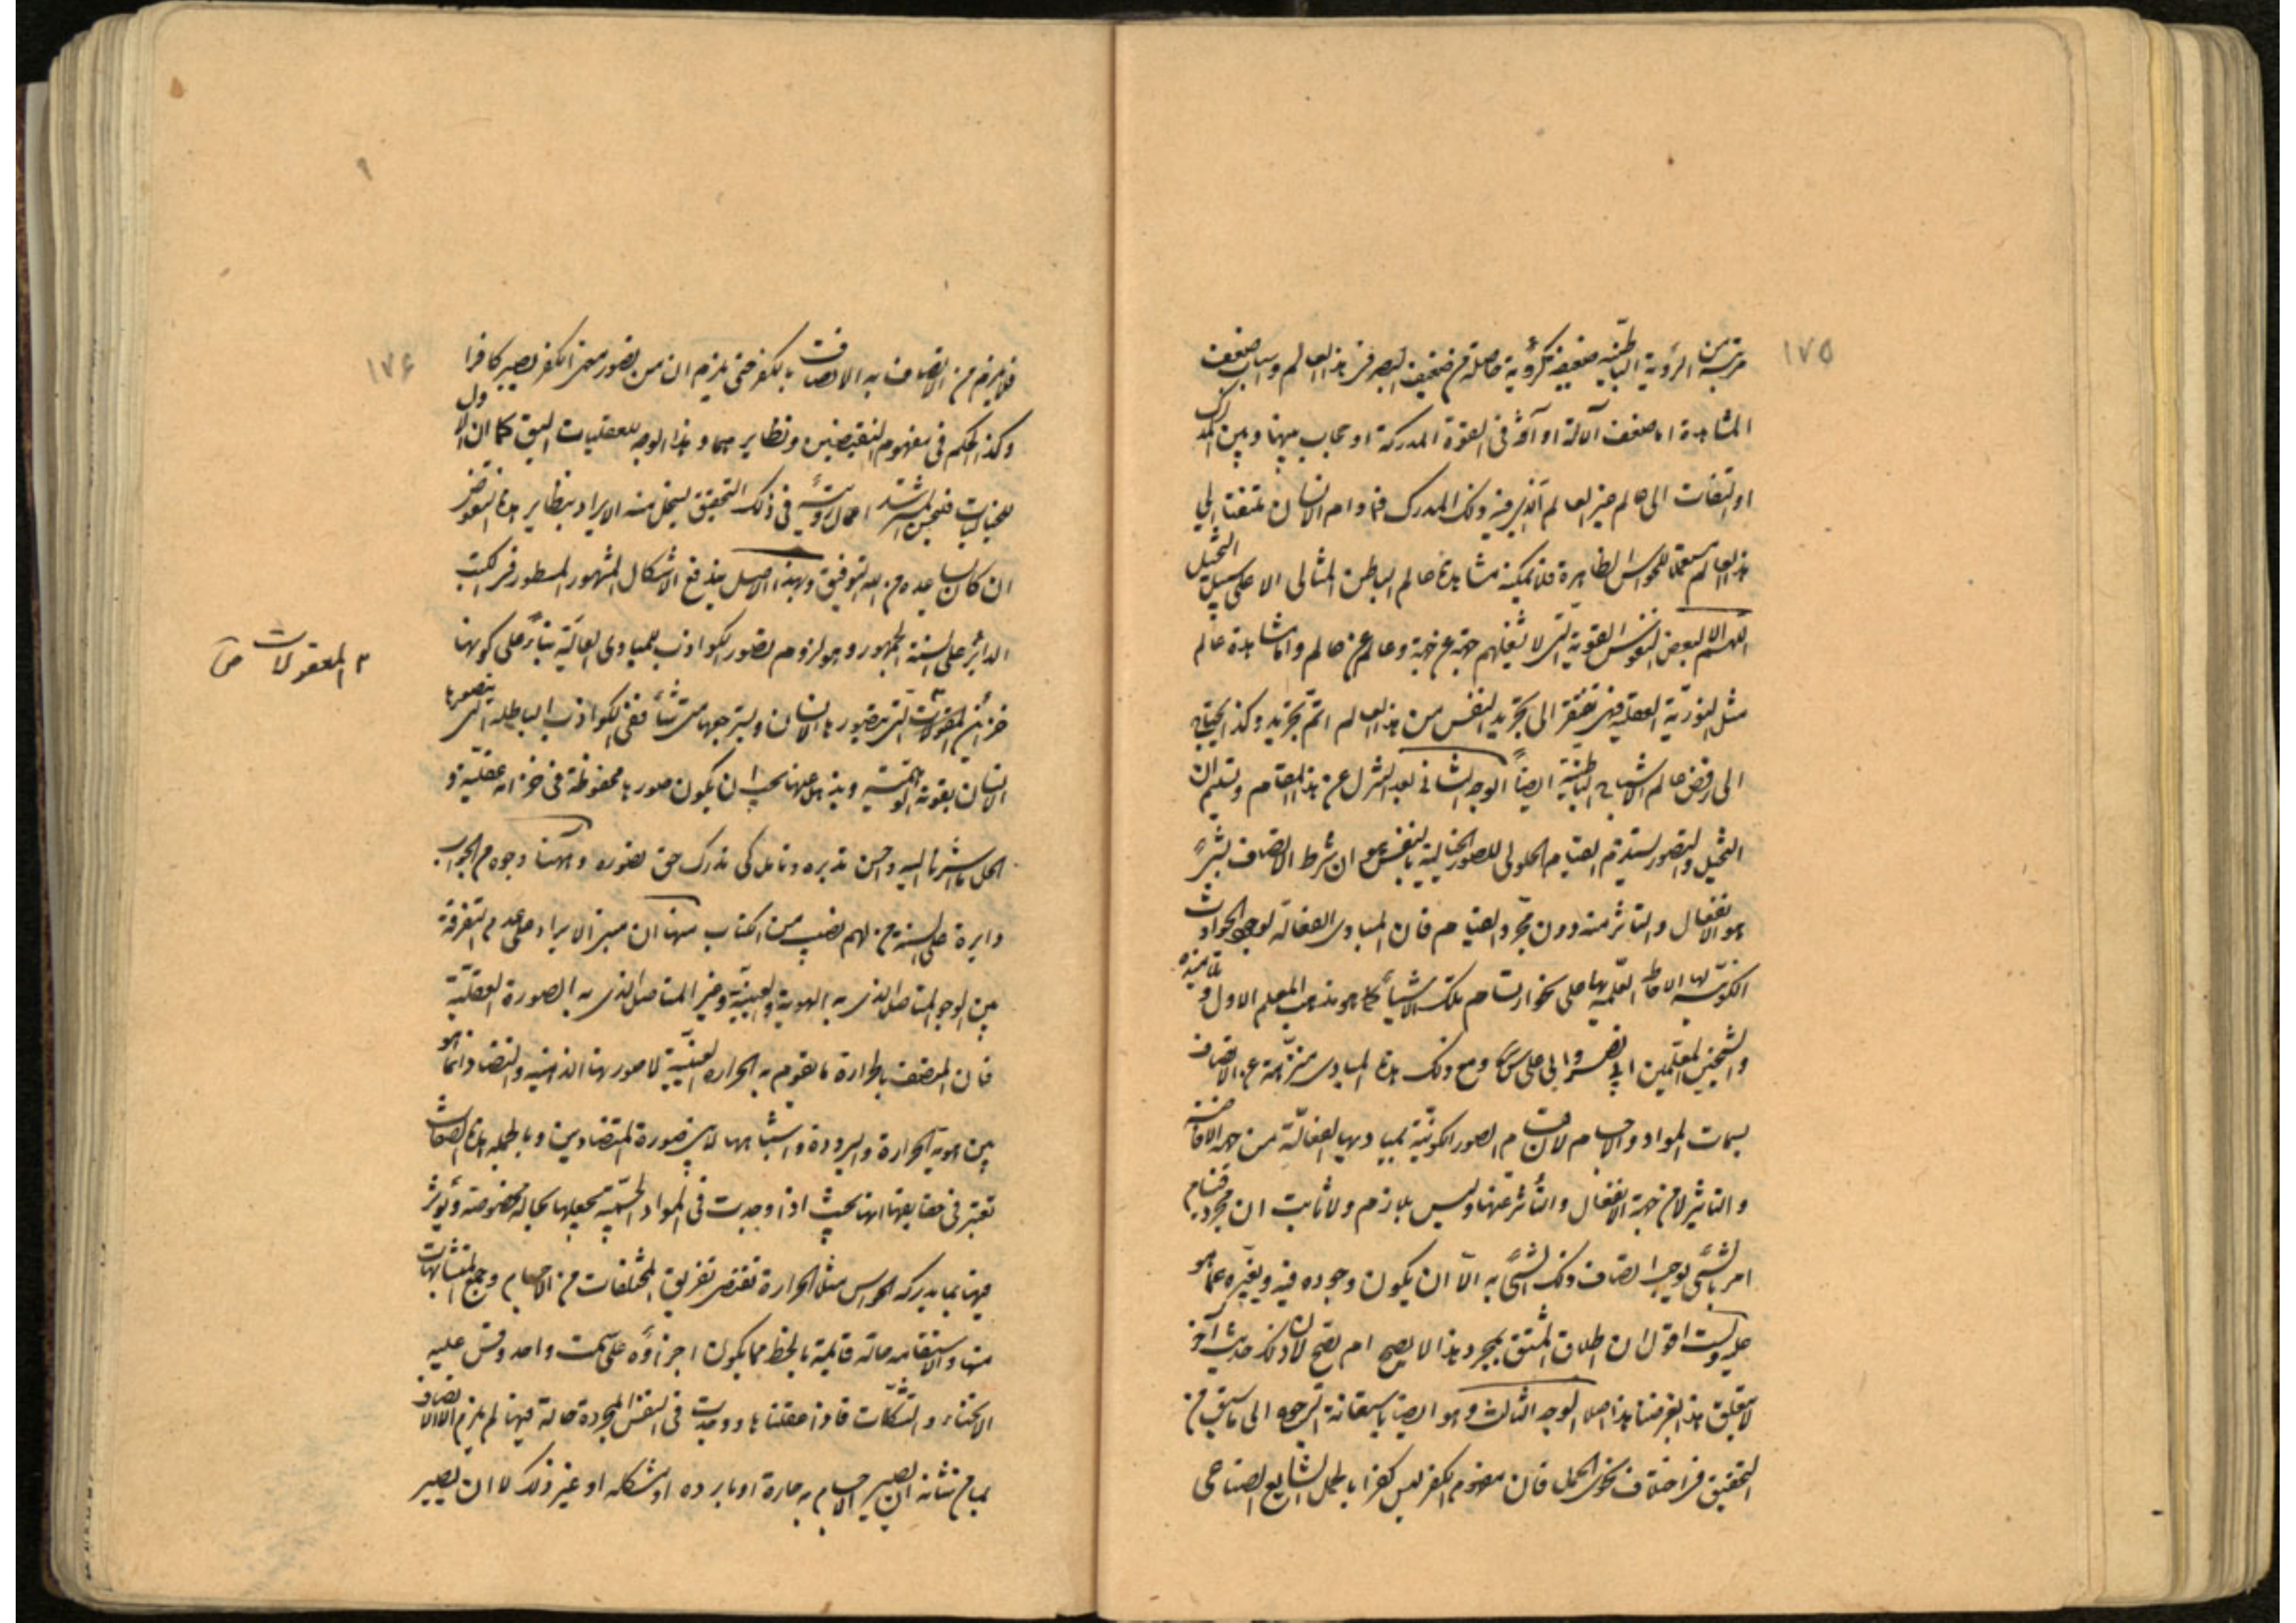 ١٧٥
مرتبة من الرؤية الباطنية ضعيفة كرؤية حاصلة من ضعيف البصر في هذا العالم واسباب ضعف
المشاهدة اما ضعف آلالة او آفة في القوة المدركة او حجاب بينها وبين المدرك
او التفات الى عالم غير العالم الذي فيه ذلك المدرك فما دام الانسان ملتفتا الى
هذا العالم مستعملا للحواس الظاهرة فلا يمكنه مشاهدة عالم الباطن المثالى الا على سبيل التخيل
اللهم الا لبعض النفوس القوية التى لا يشغلهم جهة عن جهة وعالم عن عالم واما مشاهدة عالم
مثل النورية العقلية فهى تفتقر الى تجريد النفس من هذا العالم اتم تجريد وكذا يحتاج
الى رفض عالم الاشباح الباطنية ايضاً الوجه الثانى بعد التنزل عن هذا المقام وتسليم ان
التخيل والتصور يستلزم القيام الحلولى للصور الخيالية بالنفس هو ان شرط الاتصاف بشئ
هو الانفعال والتاثر منه دون مجرد القيام فان المبادى الفعالة لوجود الحوادث
الكونية لها الاحاطة العلمية بها على نحو ارتسام تلك الاشياء كما هو مذهب المعلم الاول وتلاميذه
والشيخين المعلمين ابى نصر وابى على سينا ومع ذلك هذه المبادى منزهة عن الاتصاف
بسمات المواد والاجسام لان قيام الصور الكونية بمباديها الفعالة من جهة الافاضة
والتاثير لا من جهة الانفعال والتأثر عنها وليس بلازم ولا ثابت ان مجرد قيام
امر بالشئ يوجب اتصاف ذلك الشئ به الا ان يكون وجوده فيه ويغيره عما هو
عليه ولست اقول ان اطلاق المشتق بمجرد هذا لا يصح ام يصح لان ذلك حديث آخر
لا يتعلق بهذا لغرضنا هذا اصلا الوجه الثالث وهو ايضا باستعانة الرجوع الى ما سبق من
التحقيق في اختلاف نحوى الحمل فان مفهوم الكفر ليس كفرا بالحمل الشايع الصناعى
١٧۶
فلا يلزم من الاتصاف به الاتصاف بالكفر حتى يلزم ان من تصور معنى الكفر يصير كافرا
وكذا الحكم في مفهوم النقيضين ونظايرهما وهذا الوجه للعقليات اليق كما ان الاول
للخياليات فليحسن المسترشد اعمال رويته في ذلك التحقيق لينحل منه الايراد بنظاير هذه النقوض
ان كان ساعده من الله التوفيق وبهذا الاصل يندفع الاشكال المشهور المسطور في الكتب
الدائر على السنة الجمهور وهو لزوم تصور الكواذب للمبادى العالية بناءً على كونها
خزائن المعقولات التى يتصورها الانسان ويسترجعها متى شاء ففى الكواذب الباطلة التى يتصورها
الانسان بقوته الوهمية ويذهل عنها يجب ان يكون صورها محفوظة في خزانة عقلية و
الحل ما اشرنا اليه واحسن تدبره وتامل كى تدرك حق تصوره وههنا وجوه من الجواب
دايرة على السنة من لهم نصيب من الكتاب منها ان مبنى الايراد على عدم التفرقة
بين الوجود المتاصل الذى به الهوية العينية وغير المتاصل الذى به الصورة العقلية
فان المتصف بالحرارة ما تقوم به الحرارة العينية لا صورتها الذهنية والتضاد انما هو
بين هوية الحرارة والبرودة واشباهها لا بين صورة المتضادين وبالجملة هذه الصفات
تعتبر في حقايقها انها بحيث اذا وجدت في المواد الجسمية تجعلها بحالة مخصوصة وتؤثر
فيها بما يدركه الحواس مثلا الحرارة تقتضى تفريق المختلفات من الاجسام وجمع المتشابهات
منها والاستقامة حالة قائمة بالخط مما يكون اجزاؤه على سمت واحد وقس عليه
الانحناء والتشكلات فاذا عقلناها ووجدت في النفس المجردة حالة فيها لم يلزم الا الاتصاف
بما من شانه ان يصير الاجسام به حارة او باردة او متشكلة او غير ذلك لا ان يصير
٣ المعقولات ص